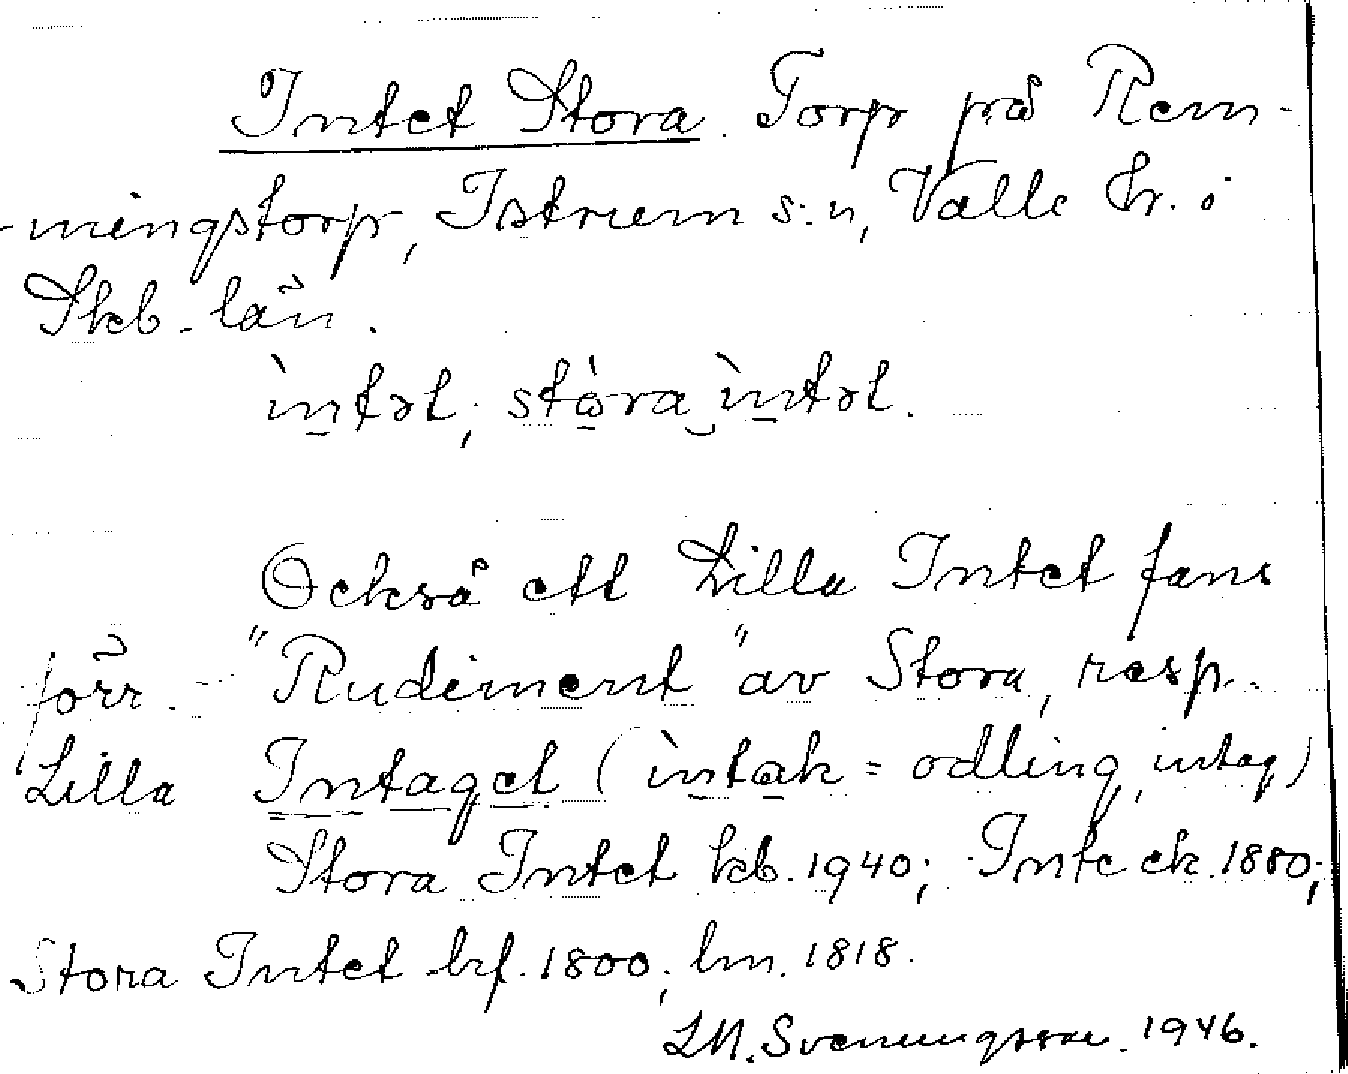 Intet Stora. Torp på Rem-
-mingstorp, Istrum s:n, Valle hr. i
Skb. län.
ìntət, stòra ìntət.
Också ett Lilla Intet fans
förr. - "Rudiment" av Stora, resp.
Lilla Intaget (ìntak = odling, intag)
Stora Intet kb. 1940; Inte ek. 1880;
Stora Intet hrf. 1800, lm. 1818.
LM. Svenungsson. 1946.